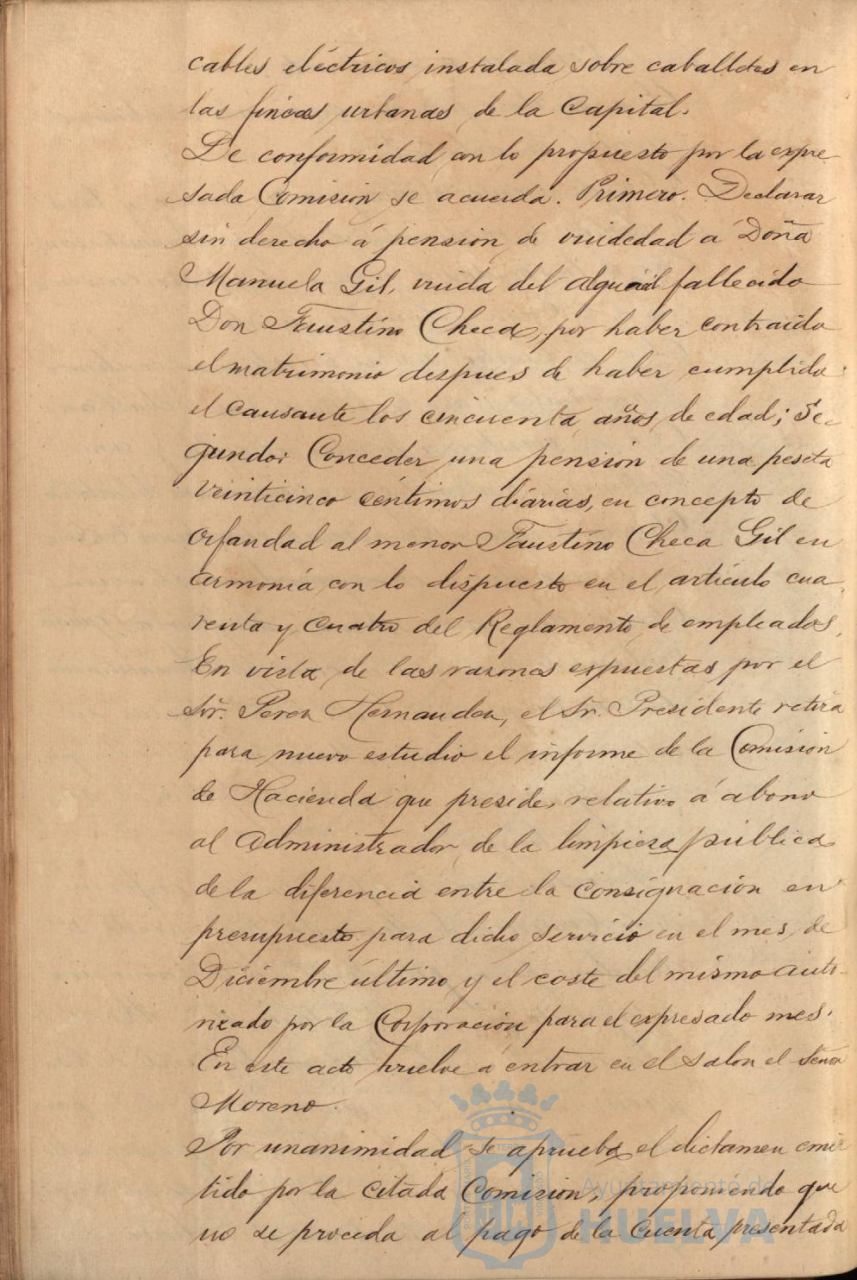 cables eléctricos instalada sobre caballetes en
las fincas urbanas de la Capital.
De conformidad con lo propuesto por la expre-
sada Comisión se acuerda. Primero. Declarar
sin derecho á pensión de viudedad a Doña
Manuela Gil, viuda del alguacil fallecido
Don Faustino Checa, por haber contraido
el matrimonio despues de haber cumplido
el causante los cincuenta años de edad; Se-
gundo: Conceder una pensión de una peseta
veinticinco céntimos diarias, en concepto de
orfandad al menor Faustino Checa Gil en
armonía con lo dispuesto en el artículo cua-
renta y cuatro del Reglamento de empleados.
En vista de las razones expuestas por el
Sr. Perez Hernandez, el Sr. Presidente retira
para nuevo estudio el informe de la Comisión
de Hacienda que preside, relativo á abono
al administrador de la limpieza pública
de la diferencia entre la consignación en
presupuesto para dicho servicio en el mes de
Diciembre último y el coste del mismo auto-
rizado por la Corporación para el expresado mes.
En este acto vuelve a entrar en el salon el Señor
Moreno.
Por unanimidad se aprueba el dictamen emi-
tido por la citada Comisión, proponiendo que
no se proceda al pago de la cuenta presentada
Ayuntamiento de
HUELVA